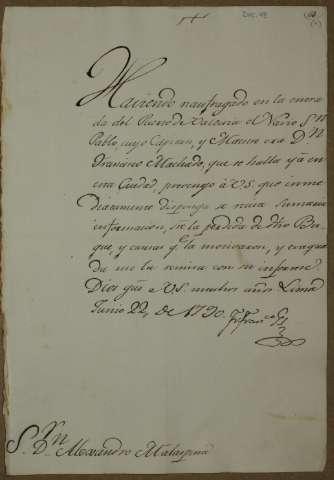 Haviendo naufragado en la ensena
da del Puerto de Valencia el Navio Sn
Pablo, cuyo Capitan, y Maestre era Dn
Francisco Machado, que se halla yà en
esta Ciudad, prevengo à VS. que inme
diatamente disponga se reciva sumaria
informacion, de la perdida de dho Bu
que, y causas qe. la motivaron, y evaqua
da me la remita con su informe.
Dios gue à VS. muchos años Lima
Junio 22, de 1790.
Sor. Dn. Alexandro Malaspina